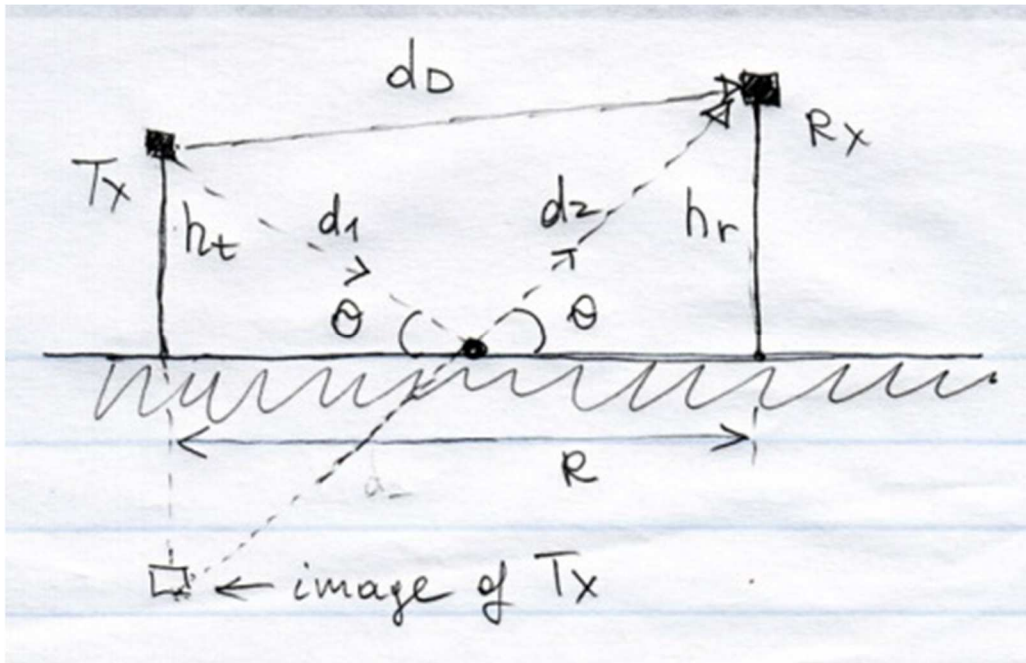 dD
Tx
Rx
ht
d1
d2
hr
θ
θ
R
image of Tx